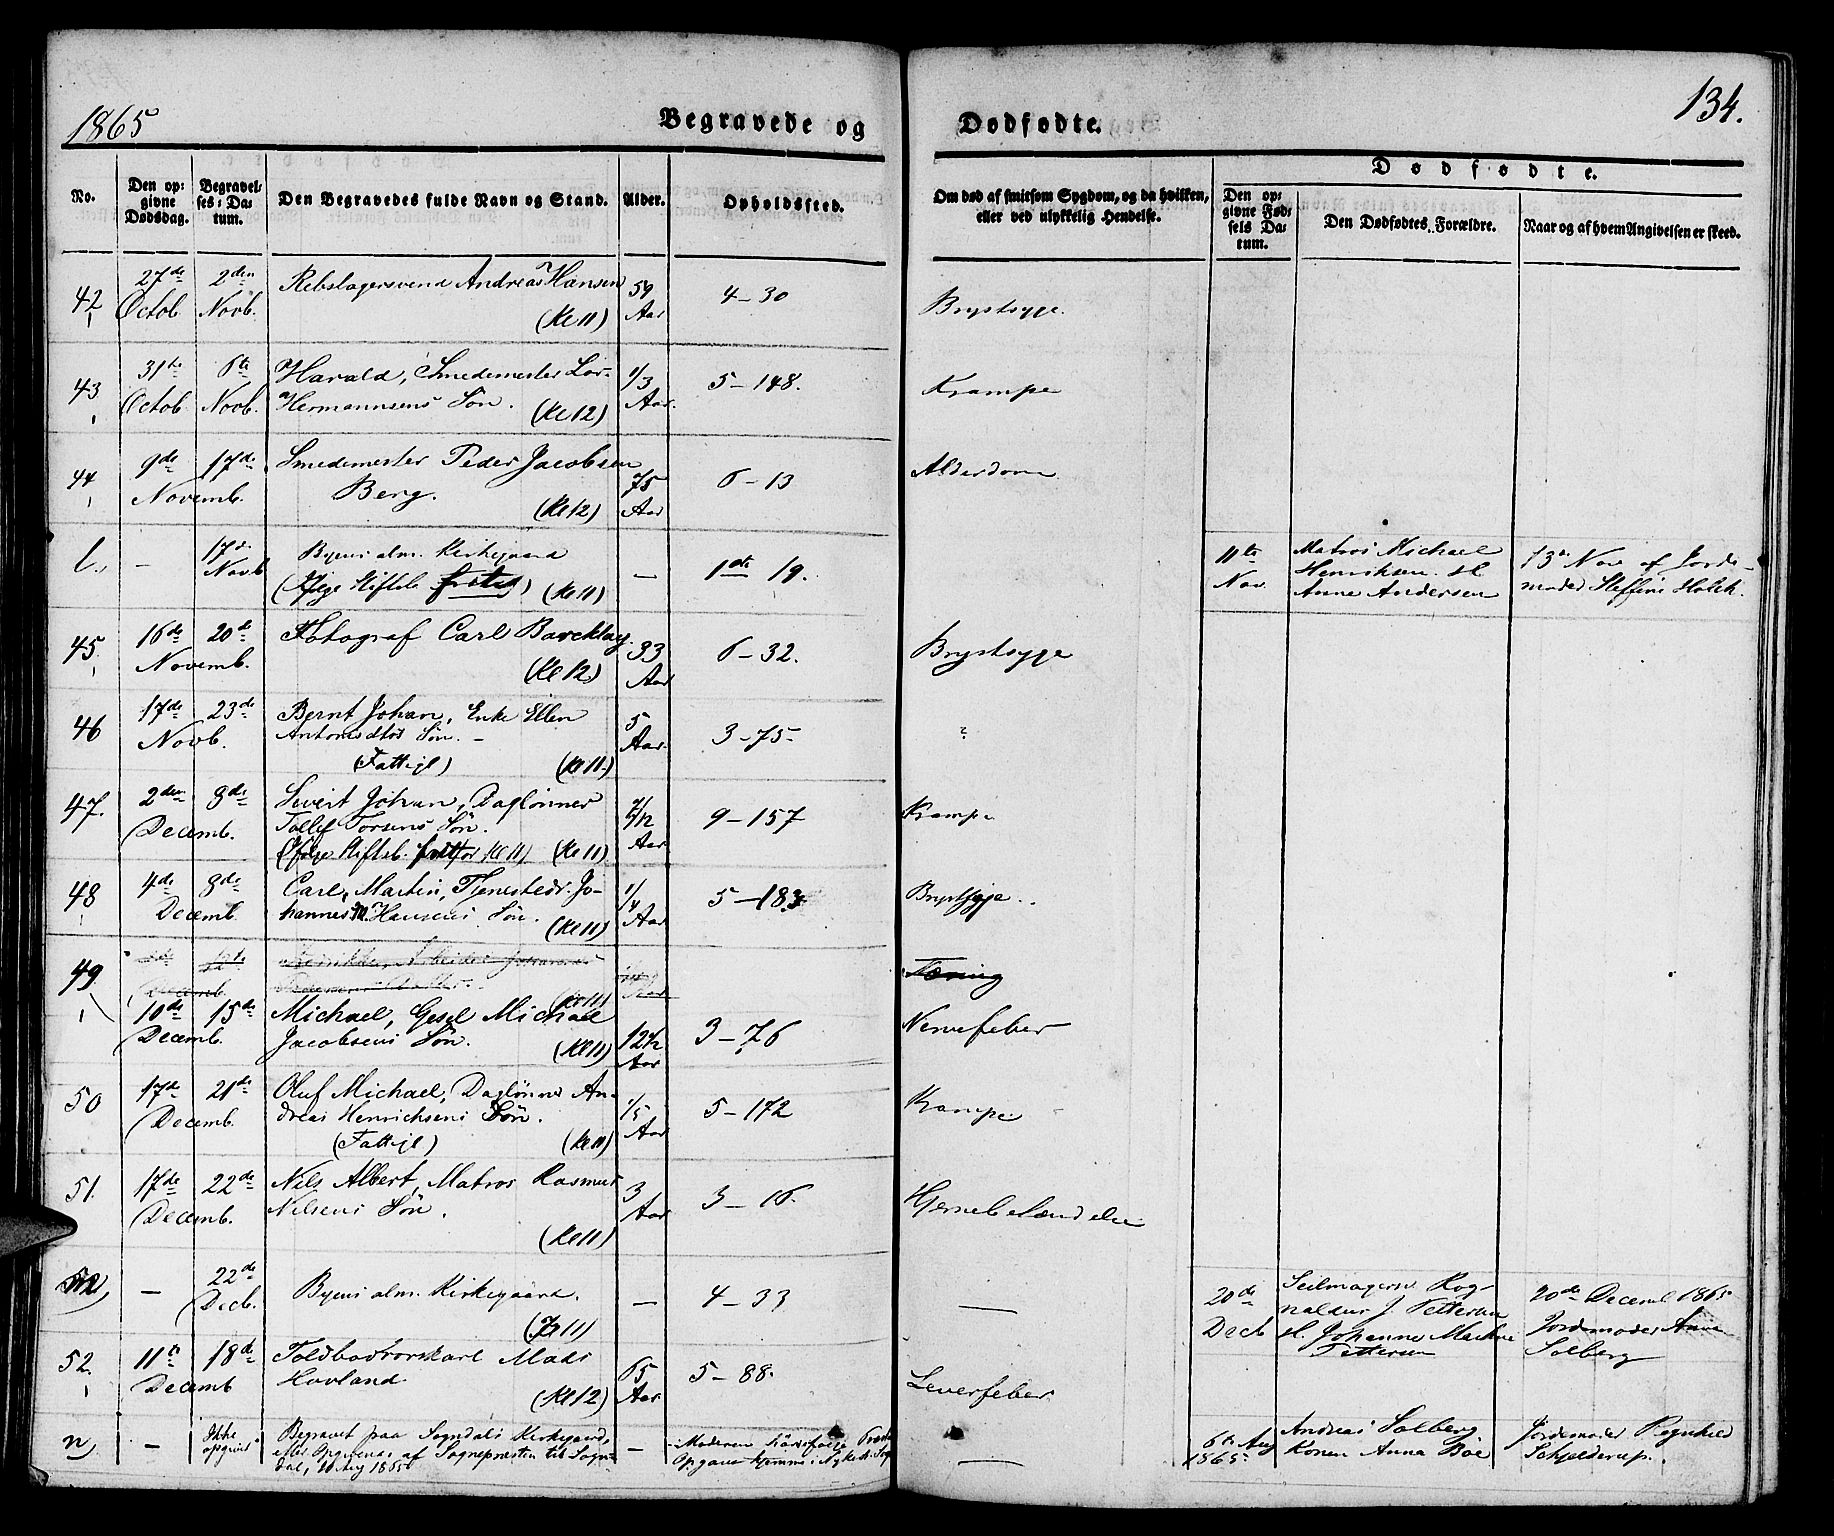 1865
Begravede og
Dødfødte.
134.
No.
Den op=
givne
Dødsdag.
Begravel=
ses=Da=
tum.
Den Begravedes fulde Navn og Stand.
Alder.
Opholdssted.
Om død af smitsom Sygdom, og da hvilken,
eller ved ulykkelig Hendelse.
Dødfødte.
Den op=
givne Fød=
sels Da=
tum.
Den Dødfødtes Forældre.
Naar og af hvem Angivelsen er skeed.
42
27de
Octob.
2den
Novb.
Rebslagersvend Andreas Hansen
(Kl 11)
59
Aar
4-30
Brystsyge.
43
31te
Octob.
6te
Novb.
Harald, Smedemester Lor-
Hermannsens Søn.
(Kl 12)
1/3
Aar.
5-148.
Krampe
44
9de
17de
Novemb.
Smedemester Peder Jacobsen
Berg.
(Kl 12)
75
Aar
6-13
Alderdom
l.
-
17de
Novb
Byens alm. Kirkegaard
(Kl 11)
-
1ste 19.
11te
Nov.
Matros Michael
Henriksen. H
Anne Andersen
13de Nov af Jorde-
moder Steffine Holch.
45.
16de
20de
Novemb.
Fotograf Carl Barcklay.
(Kl 12)
33
Aar
6-32.
Brystsyge
46
17de
23de
Novb.
Bernt Johan, Enke Ellen
Antonisdtrs Søn. -
(Fattigl)
(Kl 11)
5
Aar.
3-75-
?
47.
2den
8de
Decemb.
Sivert Johan, Daglønner
Tollef Torsens Søn.
(Ifølge Stiftsb. fritfor Kl 11) (Kl 11)
7/12
Aar
9-157
Krampe
48
4de
8de
Decemb.
Carl, Martin, Tjenestedr. Jo-
hannes M. Hansens Søn.
(Kl 11)
1/4
Aar
5-183
Brystsyge..
49.
12te
Decemb.
(Kl 11)
Aar
Tæring
10de
15de
Decemb.
Michael, Gesel Michael
Jacobsens Søn.
(Kl 11)
12 1/2
Aar
3-76
Nervefeber
50
17de
21de
Decemb.
Oluf Michael, Daglønner An-
dreas Henrichsens Søn.
(Fattigl)
(Kl 11)
1/5
Aar
5-172
Krampe
51.
17de
22de
Decemb.
Nils Albert, Matros Rasmus
Nilsens Søn.
(Kl 11)
3
Aar
3-16.
Hjernebetændelse
-
22de
Decb.
Byens alm. Kirkegaard.
(Kl 11)
-
4-33
-
20de
Decb
Seilmagersv. Rog-
naldus J. Pettersen
H. Johanne Martine
Pettersen
20de Decemb 1865
Jordemoder Anna
Solberg
52.
11te
18de
Decemb
Toldbodrorskarl Mads
Hovland.
(Kl 12)
65
Aar
5-88.
Leverfeber
n
-
Ikke
opgivet
Begravet paa Sogndals Kirkegaard,
efter Opgivende af Sognepresten til Sogn-
dal, 11 Aug 1865
-
-
6te Aug
1865
Andreas Solberg.
Konen Anna Boe
Jordemoder Regnhild
Schjelderup.